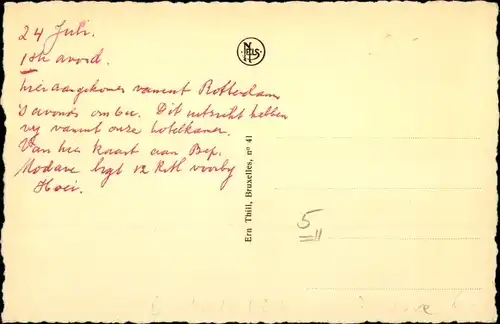 24 Juli.
1ste avond.
hier aangekomen vanuit Rotterdam
's avonds om 6 u. Dit uitzicht hebben
wij vanuit onze hotelkamer.
Van hier kaart aan Bep.
Modave ligt 12 K.M. voorbij
Hoei.
NELS
Ern Thill, Bruxelles, nº 41
5